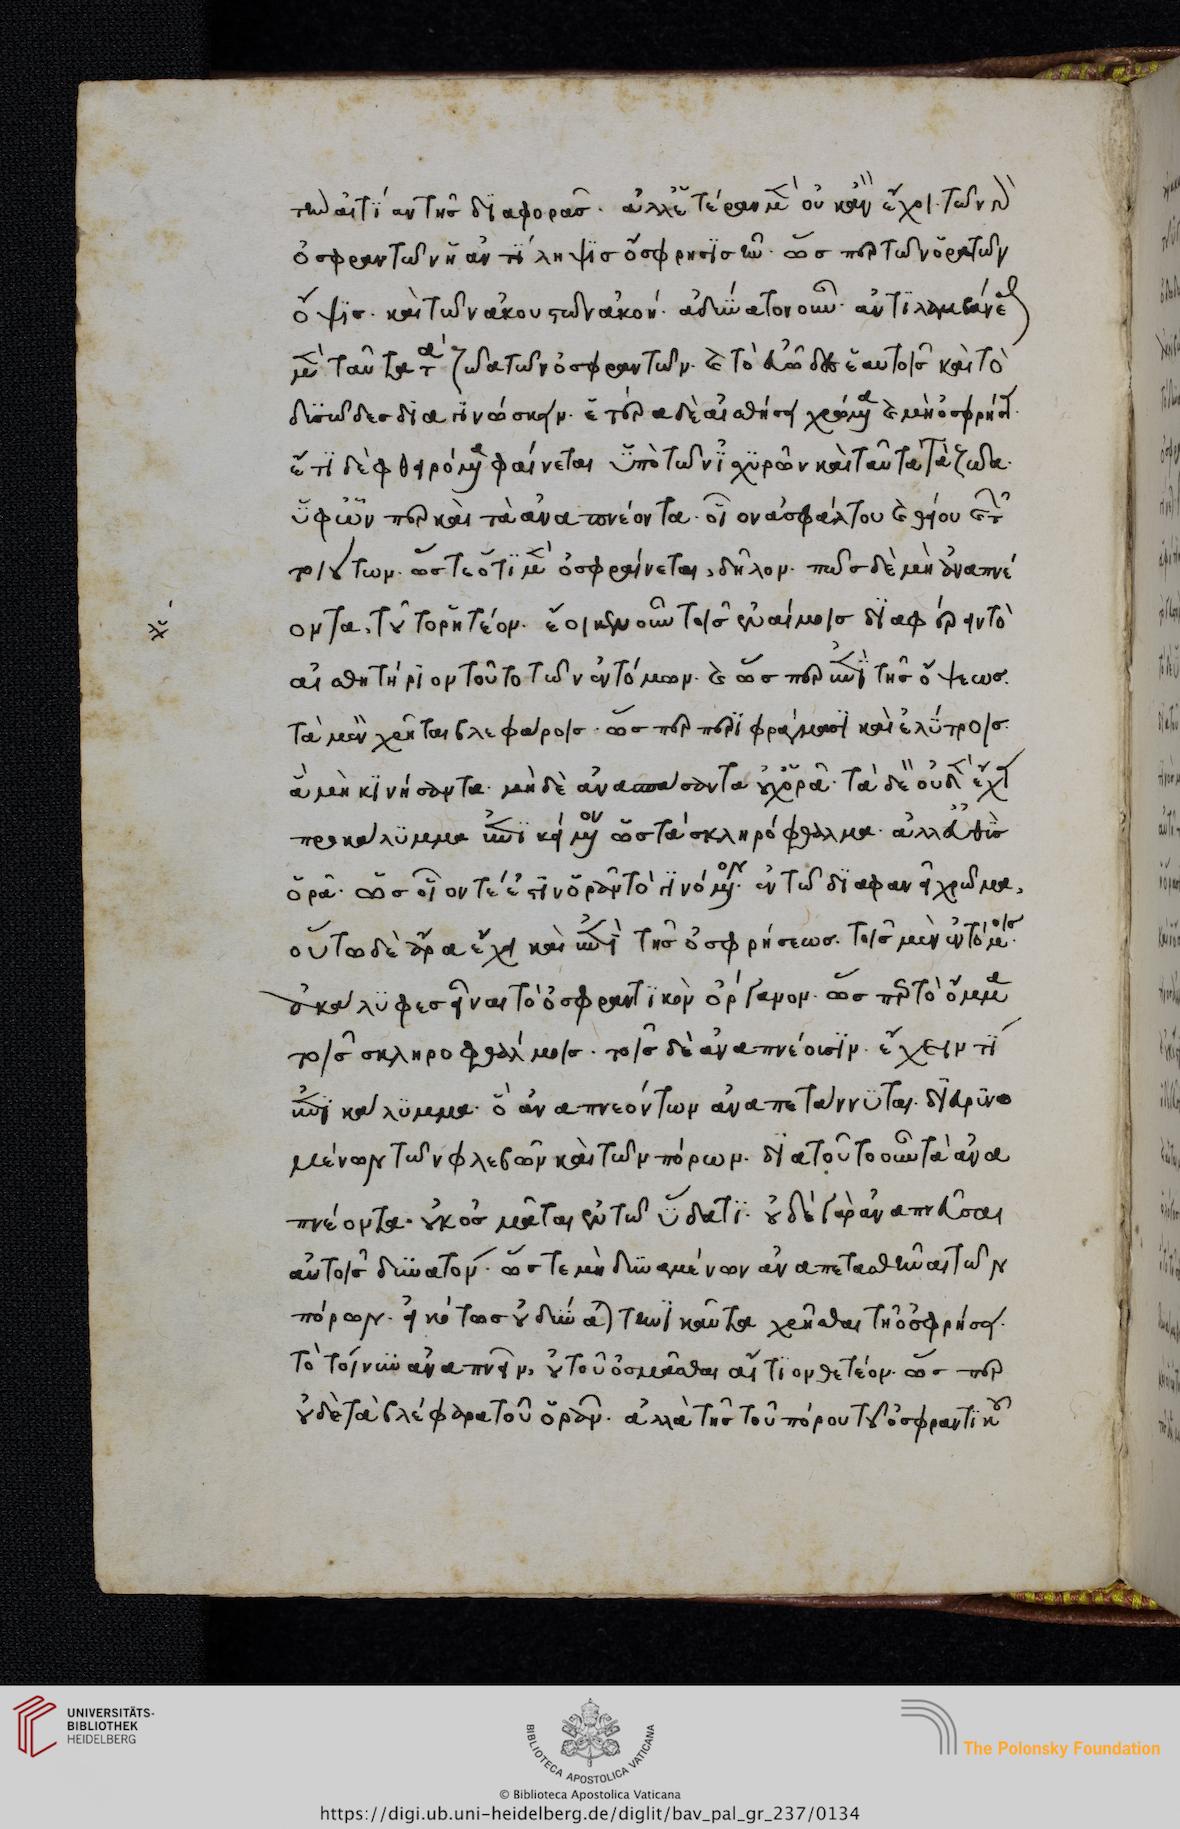 τὴν αἰτίαν τῆς διαφορᾶς. ἀλλ' ἑτέραν μὲν οὐκ ἂν ἔχοι. τῶν γὰρ
ὀσφραντῶν ἡ ἀντίληψις ὄσφρησίς ἐστιν. ὥσπερ τῶν ὁρατῶν
ὄψις. καὶ τῶν ἀκουστῶν ἀκοή. ἀδύνατον οὖν. ἀντιλαμβάνεσθαι
μὲν ταῦτα τὰ ζῶα τῶν ὀσφραντῶν. καὶ τὸ εὐῶδες ἑαυτοῖς καὶ τὸ
δυσῶδες διαγινώσκειν. ἑτέρα δὲ αἰσθήσει χρώμενα καὶ μὴ ὀσφρήσει.
ἔτι δὲ φθειρόμενα φαίνεται ὑπὸ τῶν ἰσχυρῶν καὶ ταῦτα τὰ ζῶα.
ὑφ' ὧν περ καὶ τὰ ἀναπνέοντα. οἷον ἀσφάλτου καὶ θείου καὶ τῶν
τοιούτων. ὥστε ὅτι μὲν ὀσφραίνεται, δῆλον. πῶς δὲ μὴ ἀναπνέ
οντα, τοῦτο ῥητέον. ἔοικεν οὖν τοῖς ἐναίμοις διαφέρειν τὸ
αἰσθητήριον τοῦτο τῶν ἐντόμων. καὶ ὥσπερ ἐπὶ τῆς ὄψεως.
τὰ μὲν χρῆται βλεφάροις. ὥσπερ περιφράγμασι καὶ ἐλύτροις.
ἃ μὴ κινήσαντα. μὴ δὲ ἀνασπάσαντα οὐχ ὁρᾶ. τὰ δὲ οὐδὲν ἔχει
προκάλυμμα ἐπικείμενον ὡς τὰ σκληρόφθαλμα. ἀλλ' εὐθὺς
ὁρᾶ. ὡς οἷόν τέ ἐστιν ὁρᾶν τὸ γινόμενον. ἐν τῶ διαφανεῖ χρῶμα,
οὕτω δὲ ἄρα ἔχει καὶ ἐπὶ τῆς ὀσφρήσεως. τοῖς μὲν ἐντόμοις.
ἀκαλυφὲς εἶναι τὸ ὀσφραντικὸν ὄργανον. ὥσπερ τὸ ὄμμα
τοῖς σκληροφθάλμοις. τοῖς δὲ ἀναπνέουσιν. ἔχειν τι
ἐπικάλυμμα. ὃ ἀναπνεόντων ἀναπετάννυται. διευρυνο
μένων τῶν φλεβῶν καὶ τῶν πόρων. διὰ τοῦτο οὖν τὰ ἀνα
πνέοντα. οὐκ ὀσμᾶται ἐν τῶ ὕδατι. οὐδὲ γὰρ ἀναπνεῦσαι
αὐτοῖς δυνατόν. ὥστε μὴ δυναμένων ἀναπετασθῆναι τῶν
πόρων. εἰκότως οὐ δύναται τηνικαῦτα χρῆσθαι τῆ ὀσφρήσει.
τὸ τοίνυν ἀναπνεῖν, οὐ τοῦ ὀσμᾶσθαι αἴτιον θετέον. ὥσπερ
οὐδὲ τὰ βλέφαρα τοῦ ὁρᾶν. ἀλλὰ τῆς τοῦ πόρου τοῦ ὀσφραντικοῦ
UNIVERSITÄTS-
BIBLIOTHEK
HEIDELBERG
BIBLIOTECA APOSTOLICA VATICANA
The Polonsky Foundation
© Biblioteca Apostolica Vaticana
https://digi.ub.uni-heidelberg.de/diglit/bav_pal_gr_237/0134